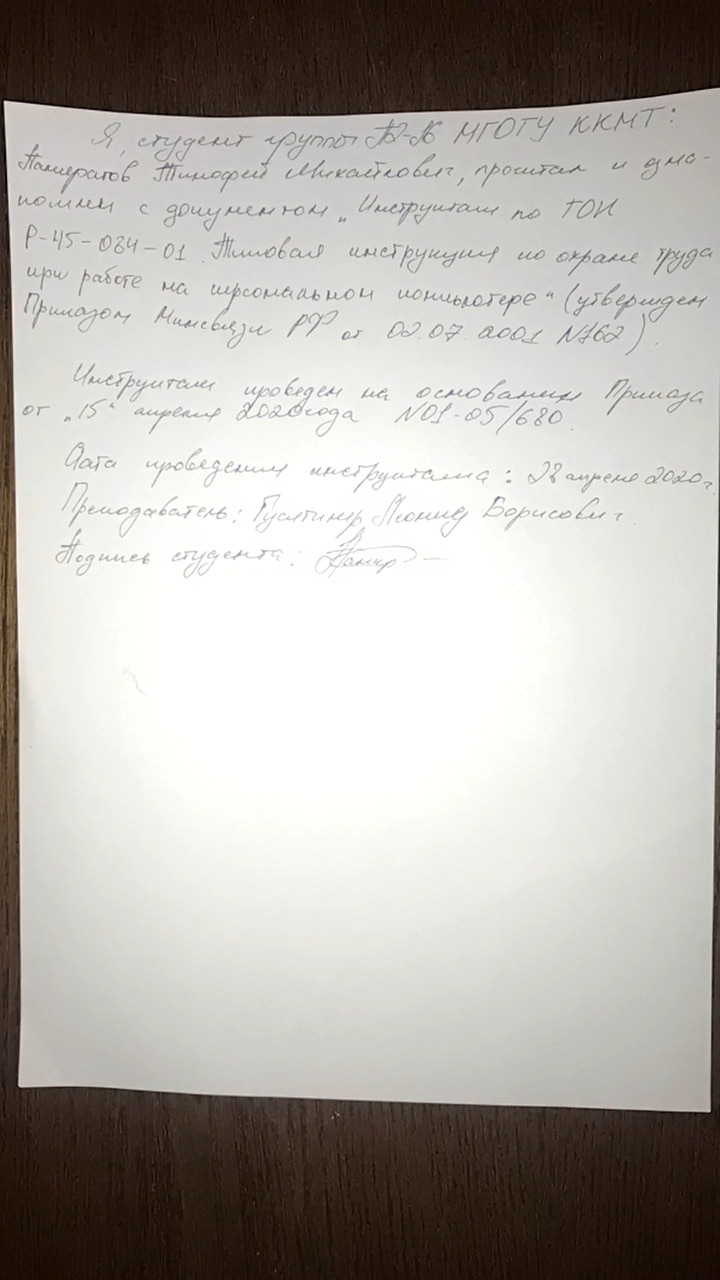 Я, студент группы П2-16 МГОТУ ККМТ:
Панкратов Тимофей Михайлович, прочитал и озна-
комлен с документом „Инструктаж по ТОИ
Р-45-084-01. Типовая инструкция по охране труда
при работе на персональном компьютере" (утвержден
Приказом Минсвязи РФ от 02.07.2001 N162).
Инструктаж проведен на основании Приказа
от „15" апреля 2020 года N01-05/680.
Дата проведения инструктажа: 28 апреля 2020 г.
Преподаватель: Гуслтинер Леонид Борисович.
Подпись студента: